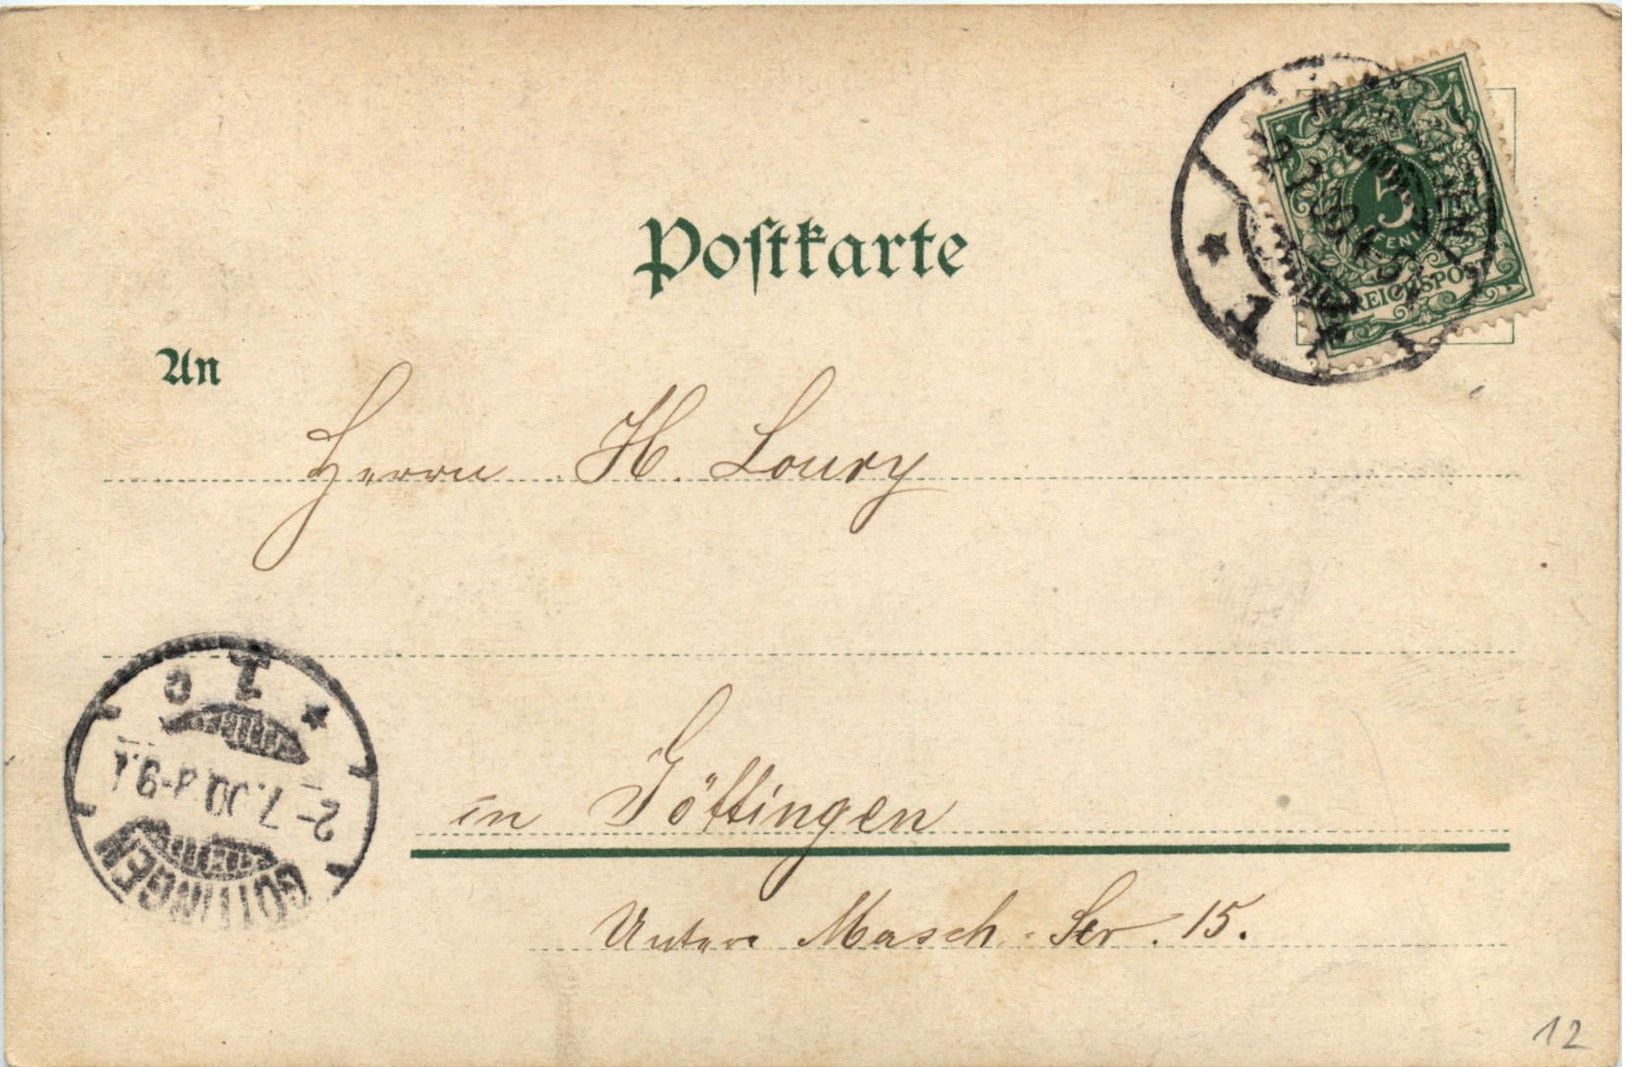 Postkarte
5
REICHSPOST
An
Herrn H. Loury
in Göttingen
Untere Masch-Str. 15.
GÖTTINGEN
2-7.00.8-9.V.
* 1 c
12